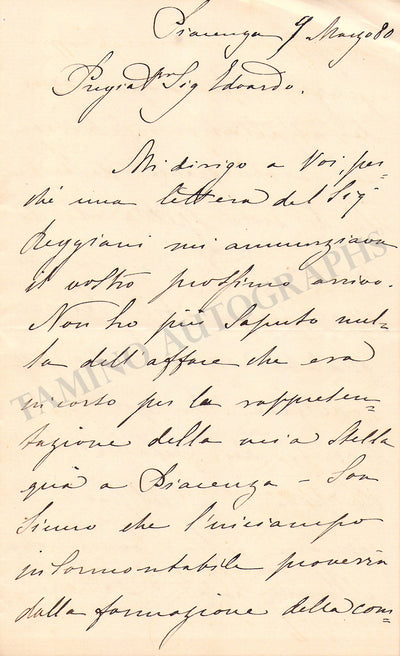 Piacenza 9 Marzo 80
Pregiat.mo Sig Edoardo.
Mi dirigo a Voi, per=
ché una lettera del Sig.r
Reggiani mi annunziava
il vostro prossimo arrivo.
Non ho più saputo nul=
la dell'affare che era
in corso per la rappresen=
tazione della mia Stella
quà a Piacenza – Son
sicuro che l'inciampo
insormontabile proverrà
dalla formazione della com=
TAMINO AUTOGRAPHS